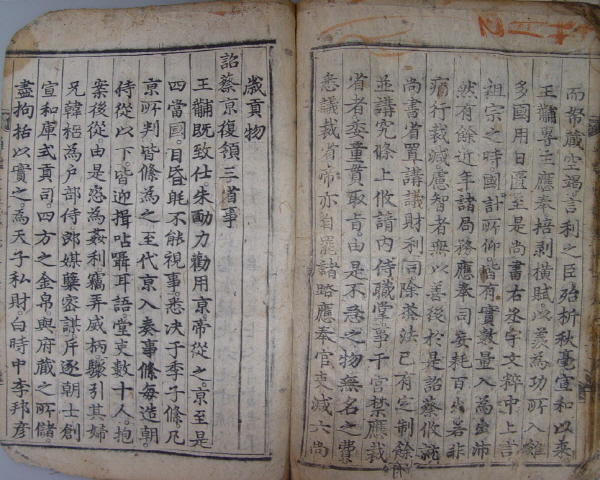 而帑藏空竭言利之臣殆析秋毫宣和以來
王黼專主應奉掊剥橫賦以羨為功所入雖
多國用日匱至是尚書右丞宇文粹中上言
祖宗之時國計所仰皆有實數量入為出沛
然有餘近年諸局務應奉司妄耗百出若非
痛行裁減慮智者無以善後於是詔蔡攸就
尚書省置講議財利司除茶法已有定制餘
並講究條上攸請内侍職掌事干宮禁應裁
省者委童貫取旨由是不急之物無名之費
悉議裁省帝亦自罷諸路應奉官吏減六尚
歲貢物
詔蔡京復領三省事
王黼既致仕朱勔力勸用京帝從之京至是
四當國目昏眊不能視事悉决于季子絛凡
京所判皆絛為之至代京入奏事絛每造朝
侍從以下皆迎揖呫囁耳語堂吏數十人抱
案後從由是恣為姦利竊弄威柄驟引其婦
兄韓梠為户部侍郎媒糵密謀斥逐朝士創
宣和庫式貢司四方之金帛與府藏之所儲
盡拘括以實之為天子私財白時中李邦彦